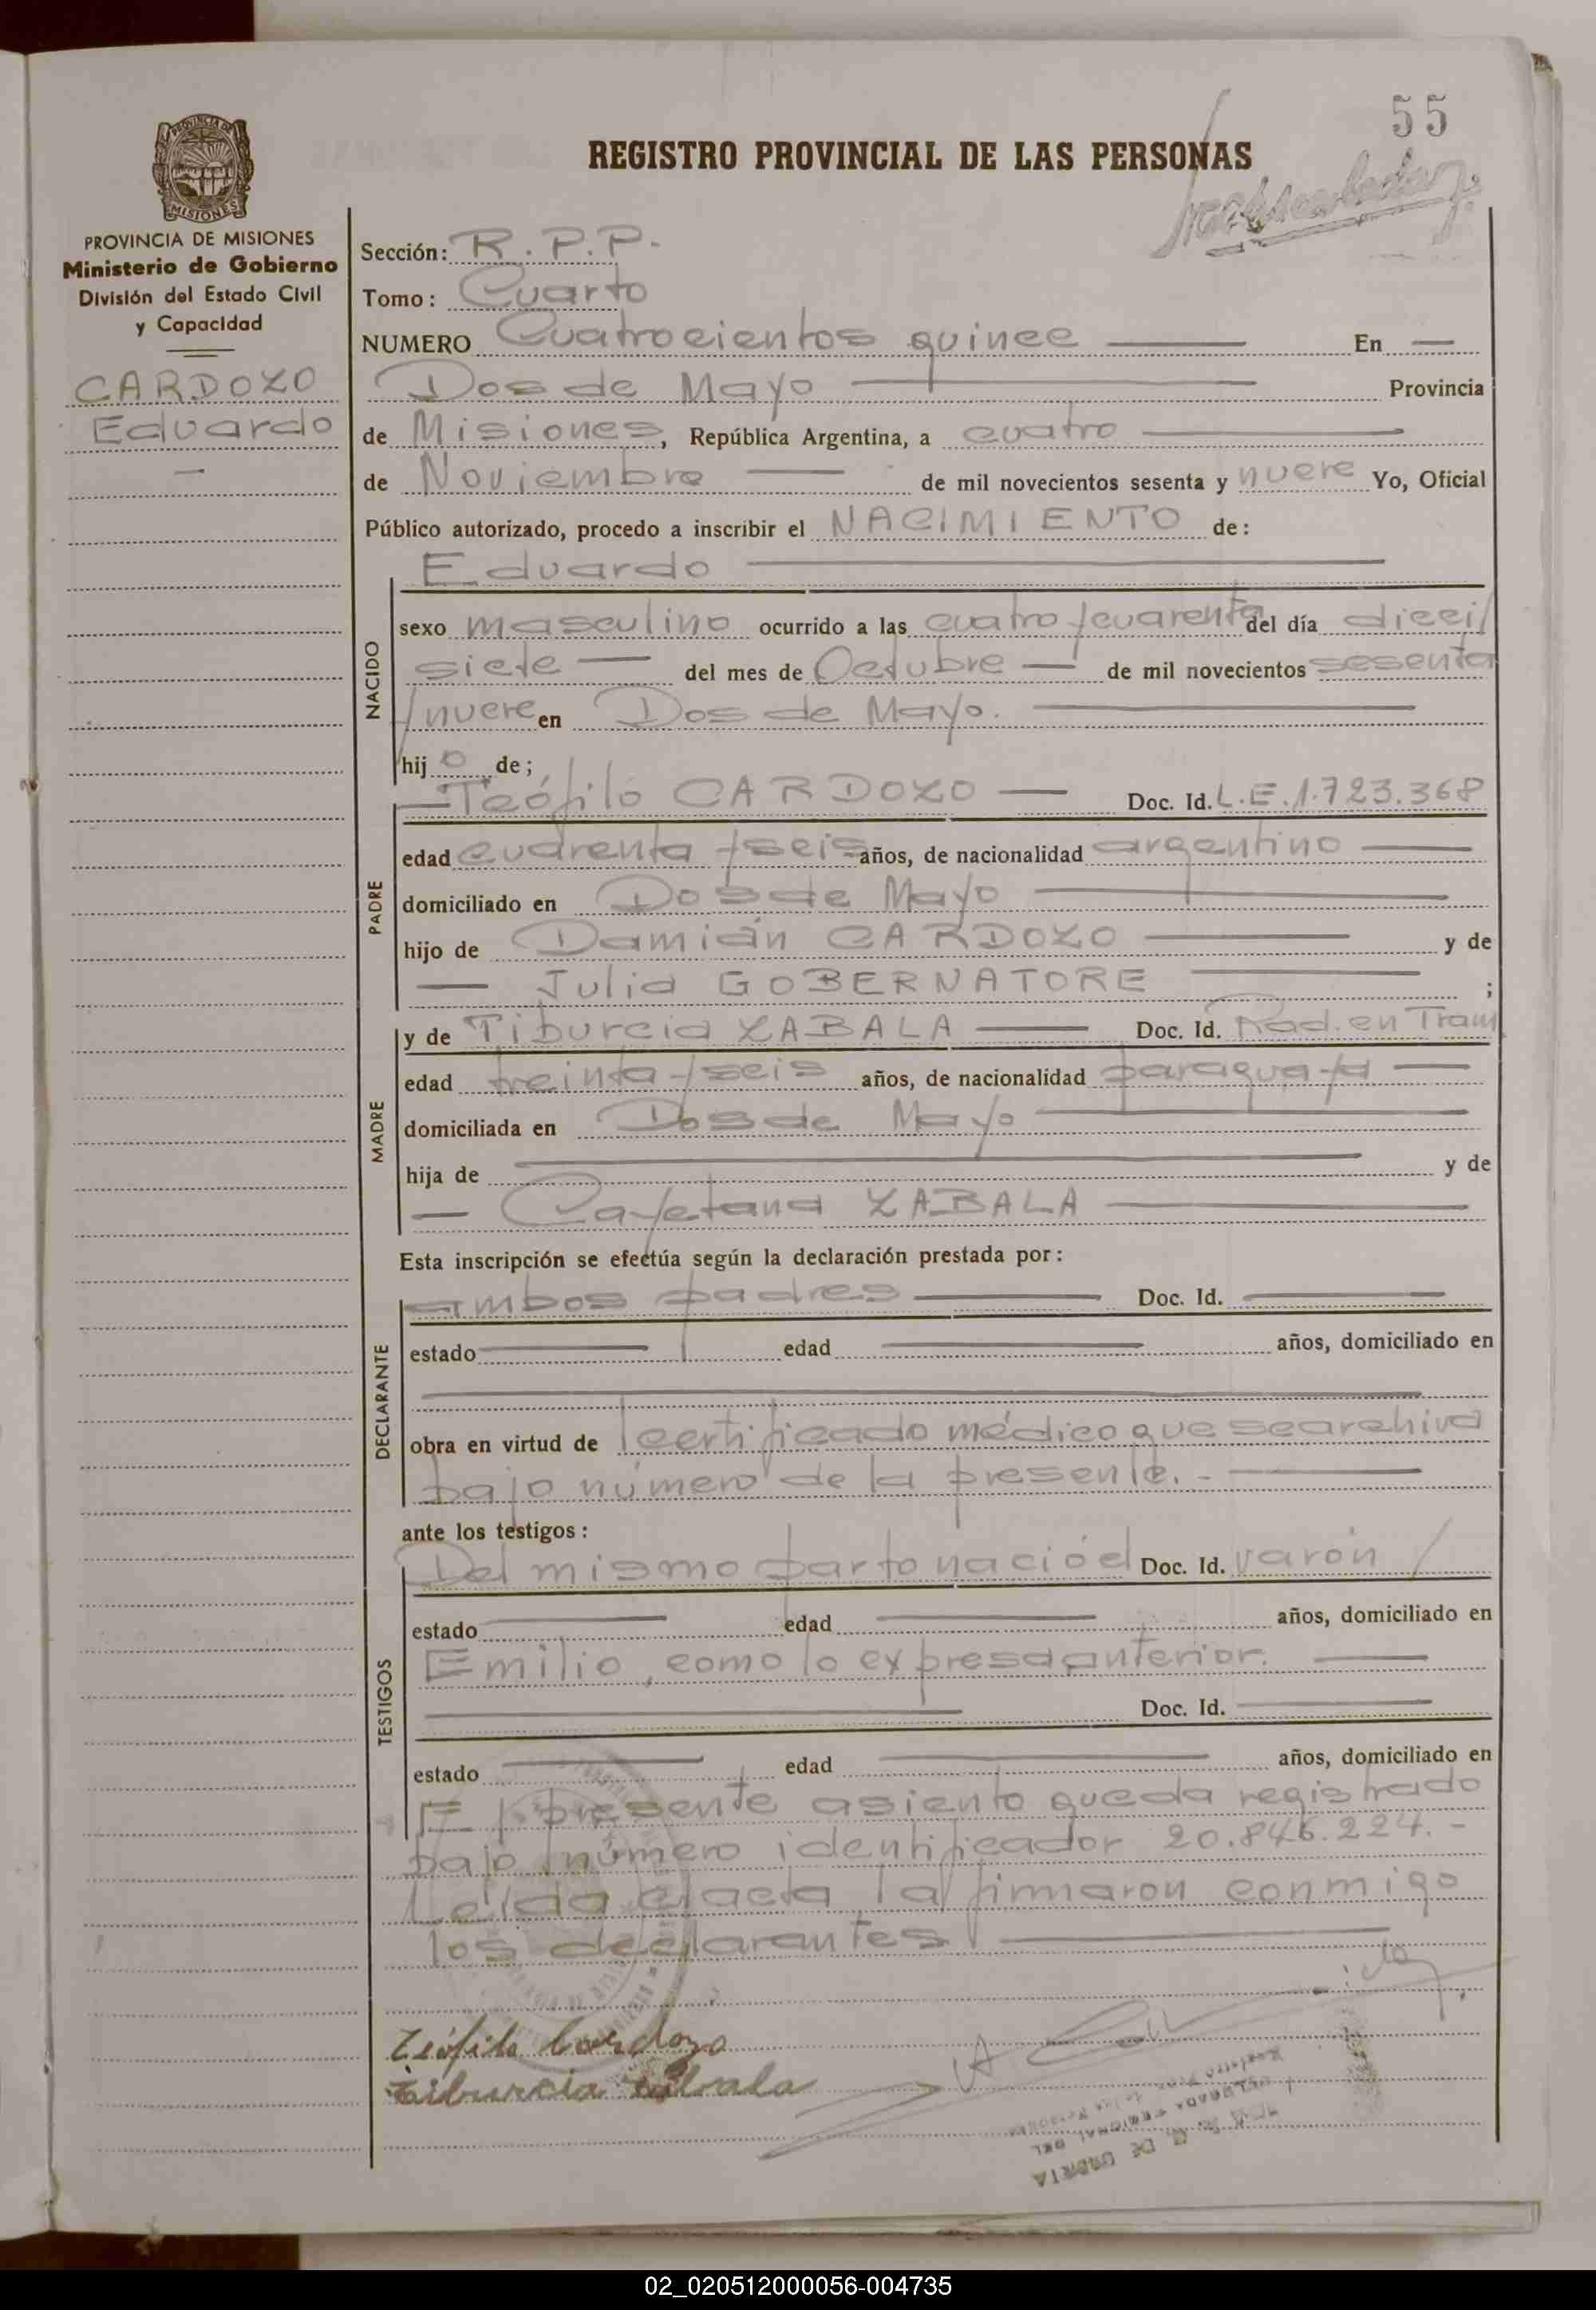 55
REGISTRO PROVINCIAL DE LAS PERSONAS
PROVINCIA DE MISIONES
Ministerio de Gobierno
División del Estado Civil
y Capacidad
CARDOZO
Eduardo
Sección: R.P.P.
Tomo: Cuarto
NUMERO Cuatrocientos quince En
Dos de Mayo Provincia
de Misiones, República Argentina, a cuatro
de Noviembre de mil novecientos sesenta y nueve Yo, Oficial
Público autorizado, procedo a inscribir el NACIMIENTO de:
Eduardo
NACIDO
sexo masculino ocurrido a las cuatro y cuarenta del día dieci/
siete del mes de Octubre de mil novecientos sesenta
y nueve en Dos de Mayo.
hijo de;
PADRE
Teófilo CARDOZO Doc. Id. L.E. 1.723.368
edad cuarenta y seis años, de nacionalidad argentino
domiciliado en Dos de Mayo
hijo de Damián CARDOZO y de
Julia GOBERNATORE ;
MADRE
y de Tiburcia ZABALA Doc. Id. Rad. en Tram
edad treinta y seis años, de nacionalidad paraguaya
domiciliada en Dos de Mayo
hija de y de
Cayetana ZABALA
Esta inscripción se efectúa según la declaración prestada por:
DECLARANTE
ambos padres Doc. Id.
estado edad años, domiciliado en
obra en virtud de certificado médico que se archiva
bajo número de la presente.-
ante los testigos:
TESTIGOS
Del mismo parto nació el Doc. Id. varón /
estado edad años, domiciliado en
Emilio, como lo expresa anterior.
Doc. Id.
estado edad años, domiciliado en
El presente asiento queda registrado
bajo número identificador 20.846.224.-
Leída el acta la firmaron conmigo
los declarantes
Teófilo Cardozo
Tiburcia Zabala
02_020512000056-004735